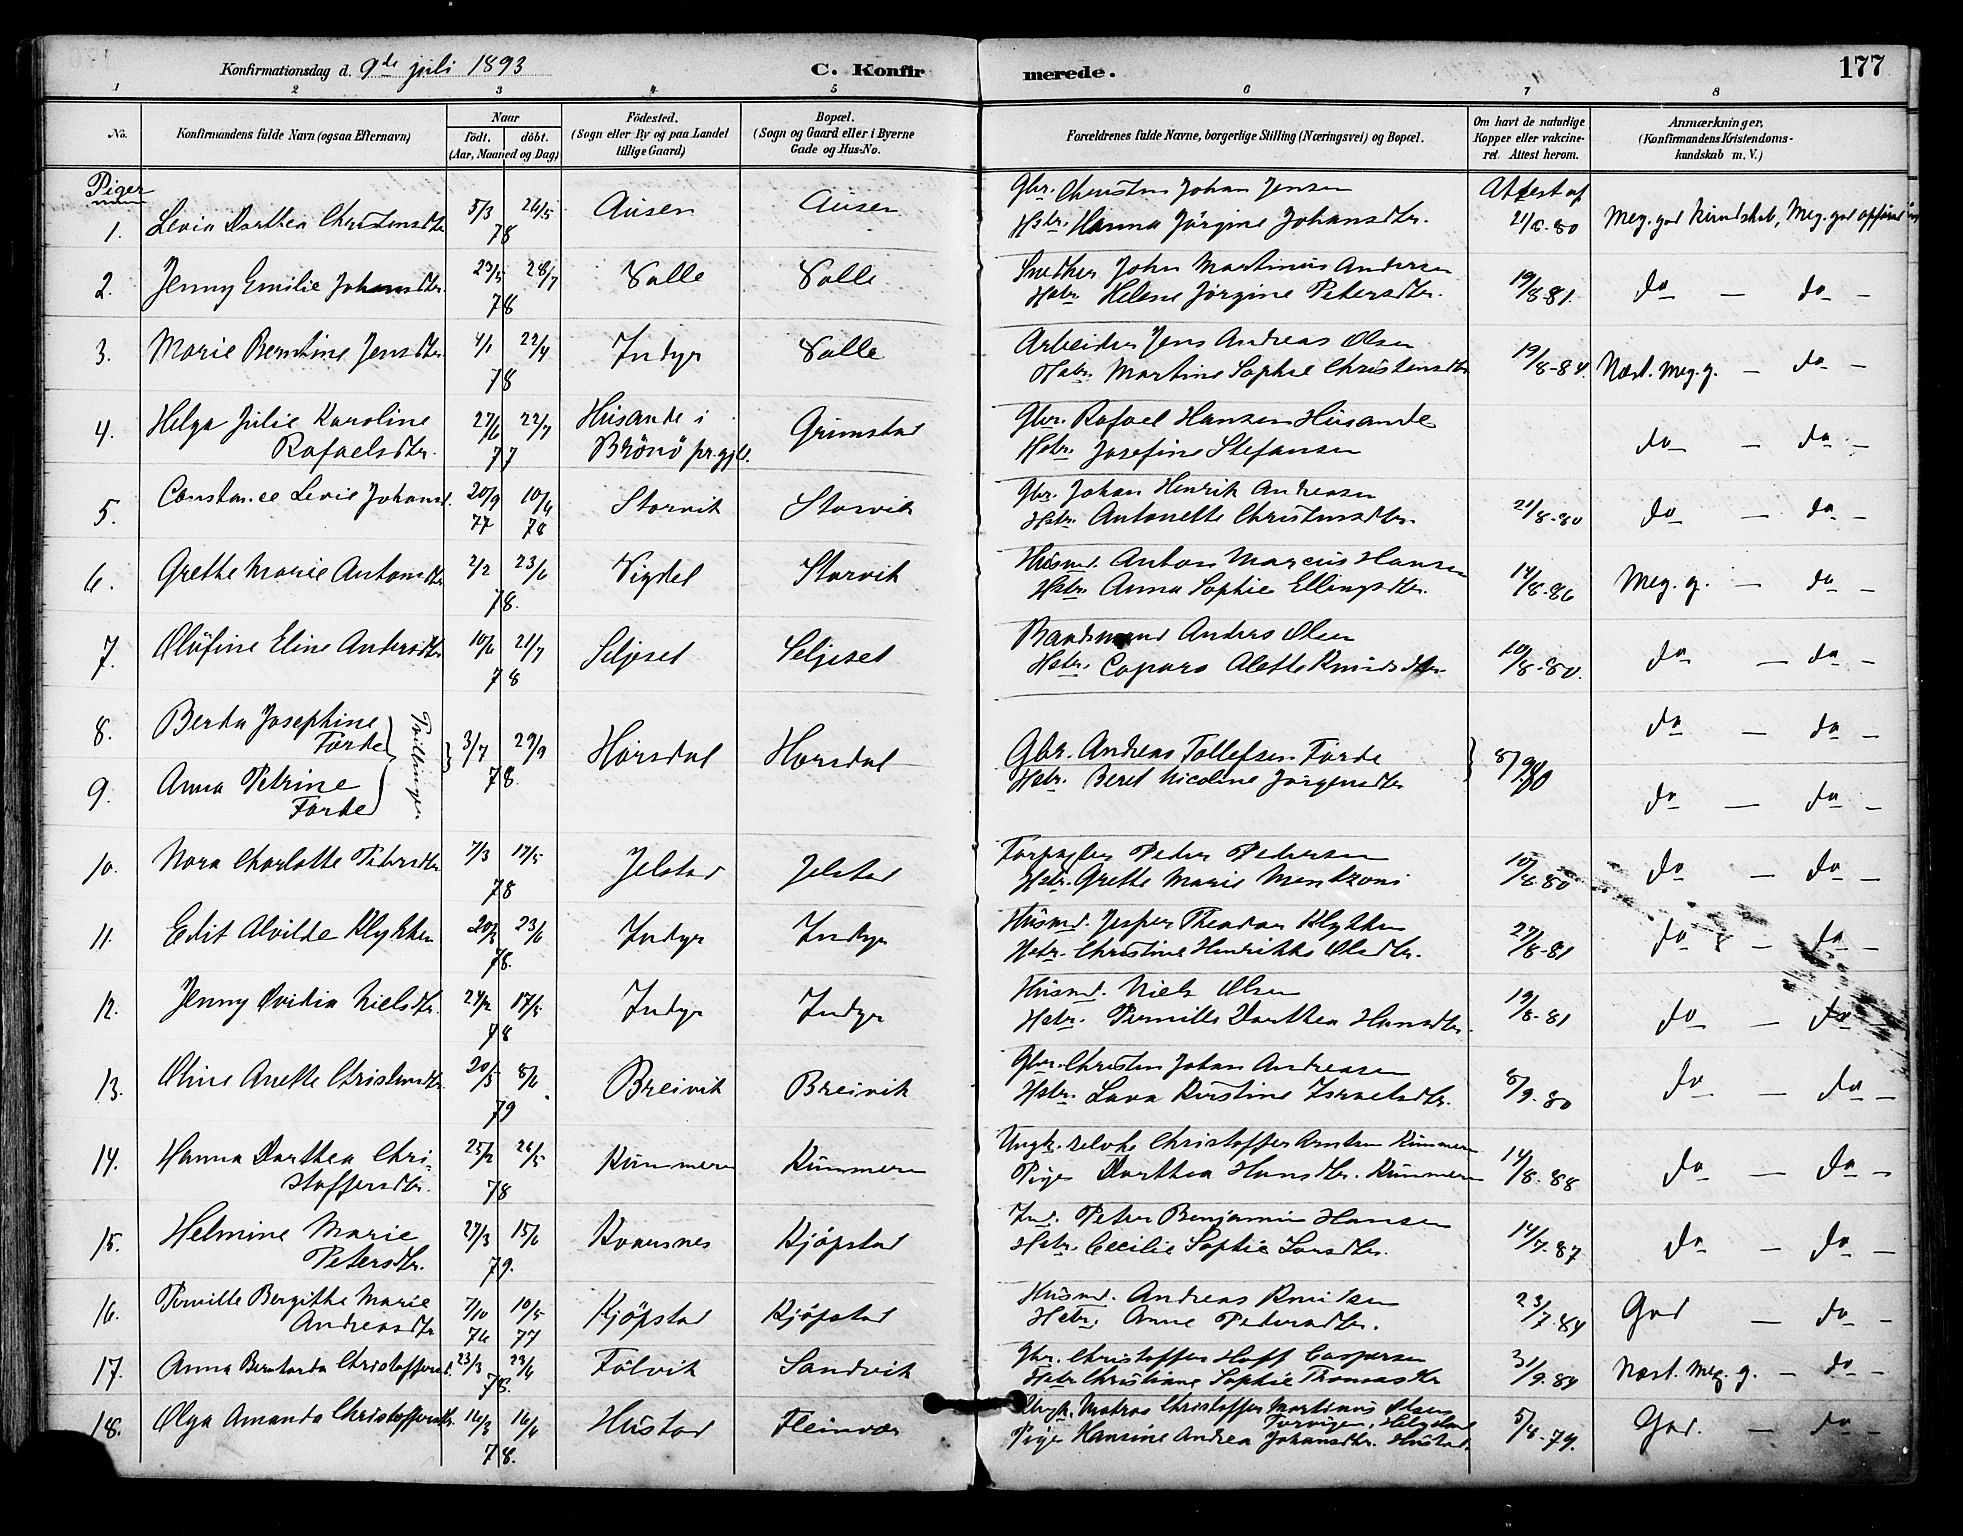 Konfirmationsdag d. 9de juli 1893
C. Konfir
merede.
177
1 2 3 4 5 6 7 8
No.
Konfirmandens fulde Navn (ogsaa Efternavn)
Naar
födt. döbt.
(Aar, Maaned og Dag)
Födested.
(Sogn eller By og paa Landet
tillige Gaard)
Bopæl.
(Sogn og Gaard eller i Byerne
Gade og Hus-No.
Forældrenes fulde Navne, borgerlige Stilling (Næringsvei) og Bopæl.
Om havt de naturlige
Kopper eller vakcine-
ret. Attest herom.
Anmærkninger,
(Konfirmandens Kristendoms-
kundskab m. V.)
Piger
1. Levia Dorthea Christensdtr. 5/3 26/5 78 Ausen Ausen
Gbr. Christen Johan Jensen
Hstr. Hanna Jörgine Johansdtr.
Attest af
21/8-80 Meg. god Kundskab, Meg. god opförsel
2. Jenny Emilie Johansdtr. 23/5 28/7 78 Valle Valle
Snedker John Martinus Andersen
Hstr. Helene Jörgine Petersdtr. 19/8-81. do — do —
3. Marie Berntine Jensdtr. 4/1 22/4 78 Indyr Valle
Arbeider Jens Andreas Olsen
Hstr. Martine Sophie Christensdtr 19/8-84. Næst. meg. g. — do —
4. Helga Julie Karoline
Rafaelsdtr. 27/6 22/7 77 Husande i
Brönö prgjl. Grimstad
Gbr. Rafael Hansen Husande
Hstr. Josefine Stefansen do — do —
5. Constance Levie Johansd. 20/9 77 10/4 78 Storvik Storvik
Gbr. Johan Henrik Andreasen
Hstr. Antonette Christensdtr. 21/8-80 do — do —
6. Grethe Marie Antonsdtr 2/2 23/6 78. Vigdel Storvik
Husmd. Anton Marcus Hansen
Hstr. Anna Sophie Ellingsdtr. 14/8-86 Meg. g. — do —
7. Olufine Eline Andersdtr 10/6 21/7 78 Seljeset Seljeset
Baadsmand Anders Olsen
Hstr. Capara Alette Knudsdtr. 10/8-80. do — do —
8. Berda Josephine
Förde
Tvillinger
3/7 29/9 78. Hörsdal Horsdal
9. Anna Petrine
Förde
Gbr. Andreas Tollefsen Förde
Hstr. Beret Nicoline Jörgensdtr 8/9 80
do — do —
do — do —
10. Nora Charlotte Petersdtr 7/3 17/5 78 Jelstad Jelstad
Forpagter Peder Pedersen
Hstr. Grethe Marie Mentzoni 10/8-80 do — do —
11. Edit Alvilde Klykken 20/3 23/6 78. Indyr Indyr
Husmd. Jesper Theodor Klykken
Hstr. Christine Henrikke Olsdtr. 27/8-81 do — do —
12. Jenny Ovidia Nielsdtr. 24/2 17/5 78 Indyr Indyr
Husmd. Niels Olsen
Hstr. Pernille Dorthea Hansdtr. 19/8-81 do — do
13. Oline Anette Christensdtr 20/3 8/6 79 Breivik Breivik
Gbr. Christen Johan Andreasen
Hstr. Lava Kirstine Israelsdtr. 8/9.80 do — do —
14. Hanna Dorthea Chri-
stoffersdtr. 25/2 26/5 78 Kunmeren Kunmeren
Ungk. Christoffer Arntsen Kunmeren
Pige Dorthea Hansdtr. Kunmeren 14/8-88 do — do —
15. Helmine Marie
Petersdtr. 27/3 15/6 79. Kvarsnes Kjöpstad
Ind. Peter Benjamin Hansen
Hstr. Cecilie Sophie Larsdtr. 14/7-87 do — do —
16. Pernille Bergithe Marie
Andreasdtr 7/10 76 10/5 77 Kjöpstad Kjöpstad
Husmd. Andreas Knudsen
Hstr. Anne Pedersdtr. 23/7.84 God — do —
17. Anna Berntarda Christoffersd. 23/3 23/6 78. Fölvik Sandvik
Gbr. Christoffer Hoff Caspersen
Hstr. Christiane Sophie Thomasdtr 31/9.84 Næst. meg. g. — do —
18. Olga Amanda Christoffersdtr. 16/3 16/6 78. Hustad Fleinvær
Ungk. Matros Christoffer Martinus Olsen
Torvigen, Helgeland
Pige Hansine Andrea Johansdtr. Hustad. 5/8-79. God. — do —